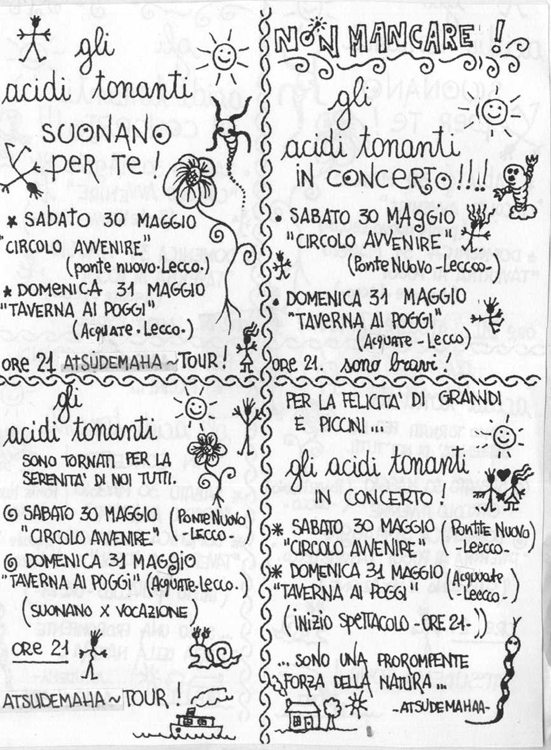 gli
acidi tonanti
SUONANO
PER TE!
★ SABATO 30 MAGGIO
"CIRCOLO AVVENIRE"
(ponte nuovo-Lecco.)
★ DOMENICA 31 MAGGIO
"TAVERNA AI POGGI"
(Acquate-Lecco.)
ORE 21 ATSÜDEMAHA~TOUR!
NON MANCARE!
gli
acidi tonanti
IN CONCERTO!!!!
• SABATO 30 MAGGIO
"CIRCOLO AVVENIRE"
(Ponte Nuovo-Leccco-)
• DOMENICA 31 MAGGIO
"TAVERNA AI POGGI"
(Acquate-Lecco)
ORE 21. sono bravi!
gli
acidi tonanti
SONO TORNATI PER LA
SERENITA' DI NOI TUTTI.
SABATO 30 MAGGIO (Ponte Nuovo
"CIRCOLO AVVENIRE" -Lecco-)
DOMENICA 31 MAGGIO
"TAVERNA AI POGGI" (Acquate-Lecco.)
(SUONANO X VOCAZIONE)
ORE 21
ATSUDEMAHA~TOUR!
PER LA FELICITA' DI GRANDI
E PICCINI...
gli acidi tonanti
IN CONCERTO!
* SABATO 30 MAGGIO (Pontite Nuovo)
"CIRCOLO AVVENIRE" -Lecco-)
* DOMENICA 31 MAGGIO (Acquate
"TAVERNA AI POGGI" -Lecco.)
(INIZIO SPETTACOLO -ORE 21-))
... SONO UNA PROROMPENTE
FORZA DELLA NATURA...
-ATSÜDEMAHAA-